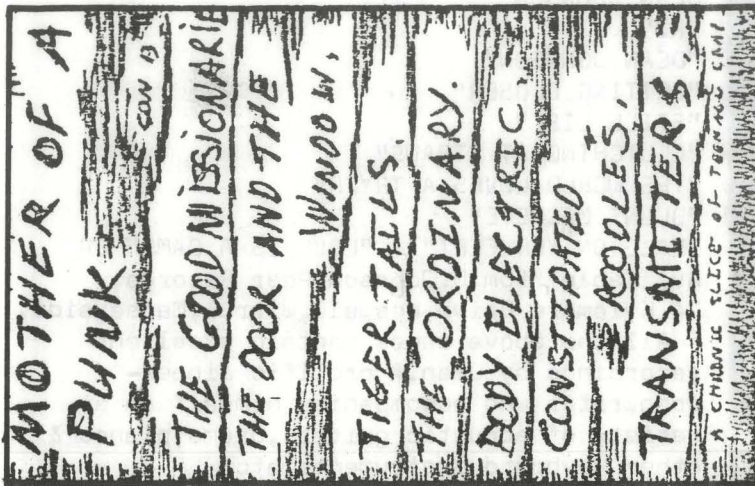 MOTHER OF A
PUNK
CON 13
THE GOOD MISSIONARIE
THE DOOR AND THE
THE WINDOW.
TIGER TAILS.
THE ORDINARY
BODY ELECTRIC
CONSTIPATED
NOODLES.
TRANSMITTERS
A CHRONIC SLICE OF TEENAGE CRAP